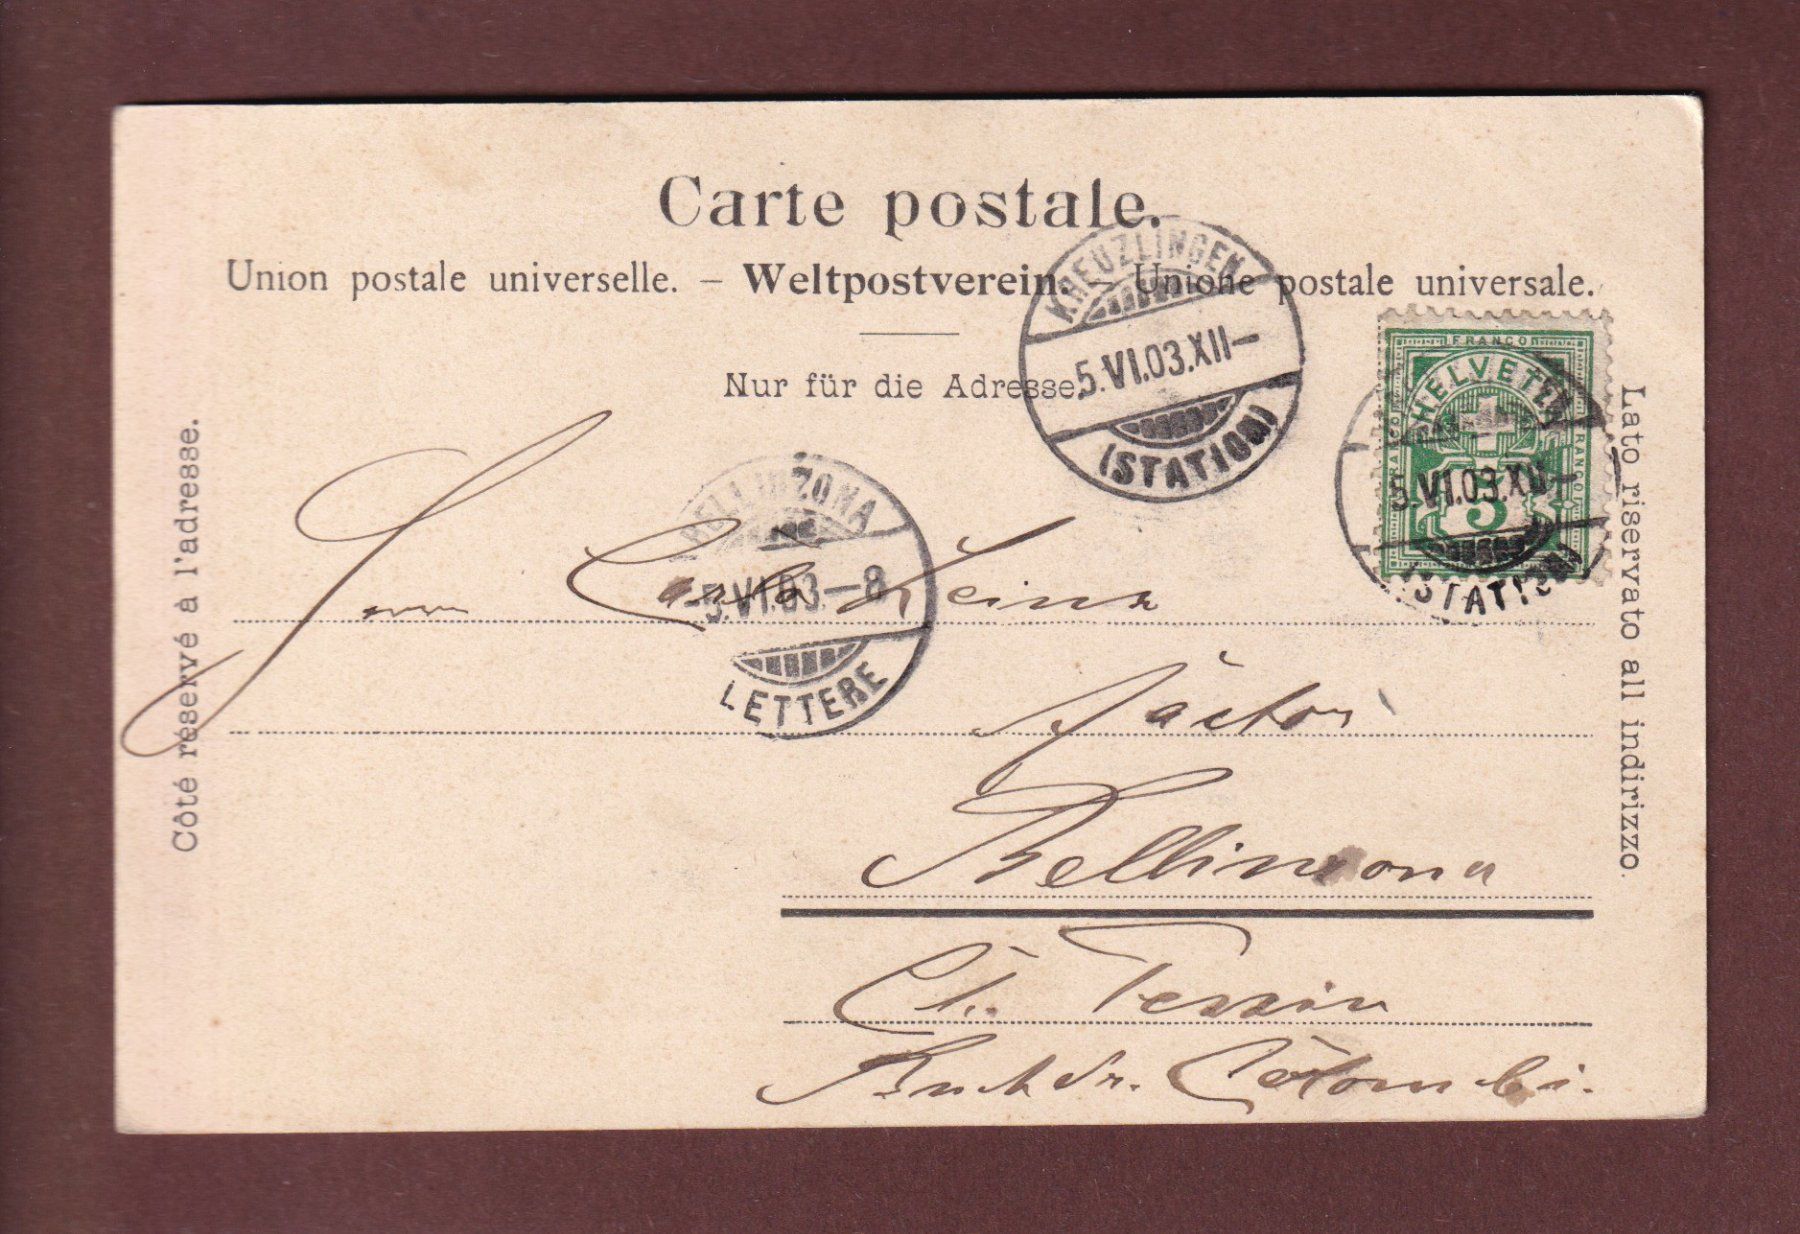 Carte postale.
Union postale universelle. – Weltpostverein. – Unione postale universale.
Nur für die Adresse.
Côté réservé à l'adresse.
Lato riservato all indirizzo.
KREUZLINGEN
5.VI.03.XII–
(STATION)
FRANCO
HELVETIA
FRANCO
FRANCO
5
5.VI.03.XII–
(STATION)
BELLINZONA
5.VI.03.–8
LETTERE
Herrn Carlo
Bellinzona
Ct. Tessin
Buchdr. Colombi.